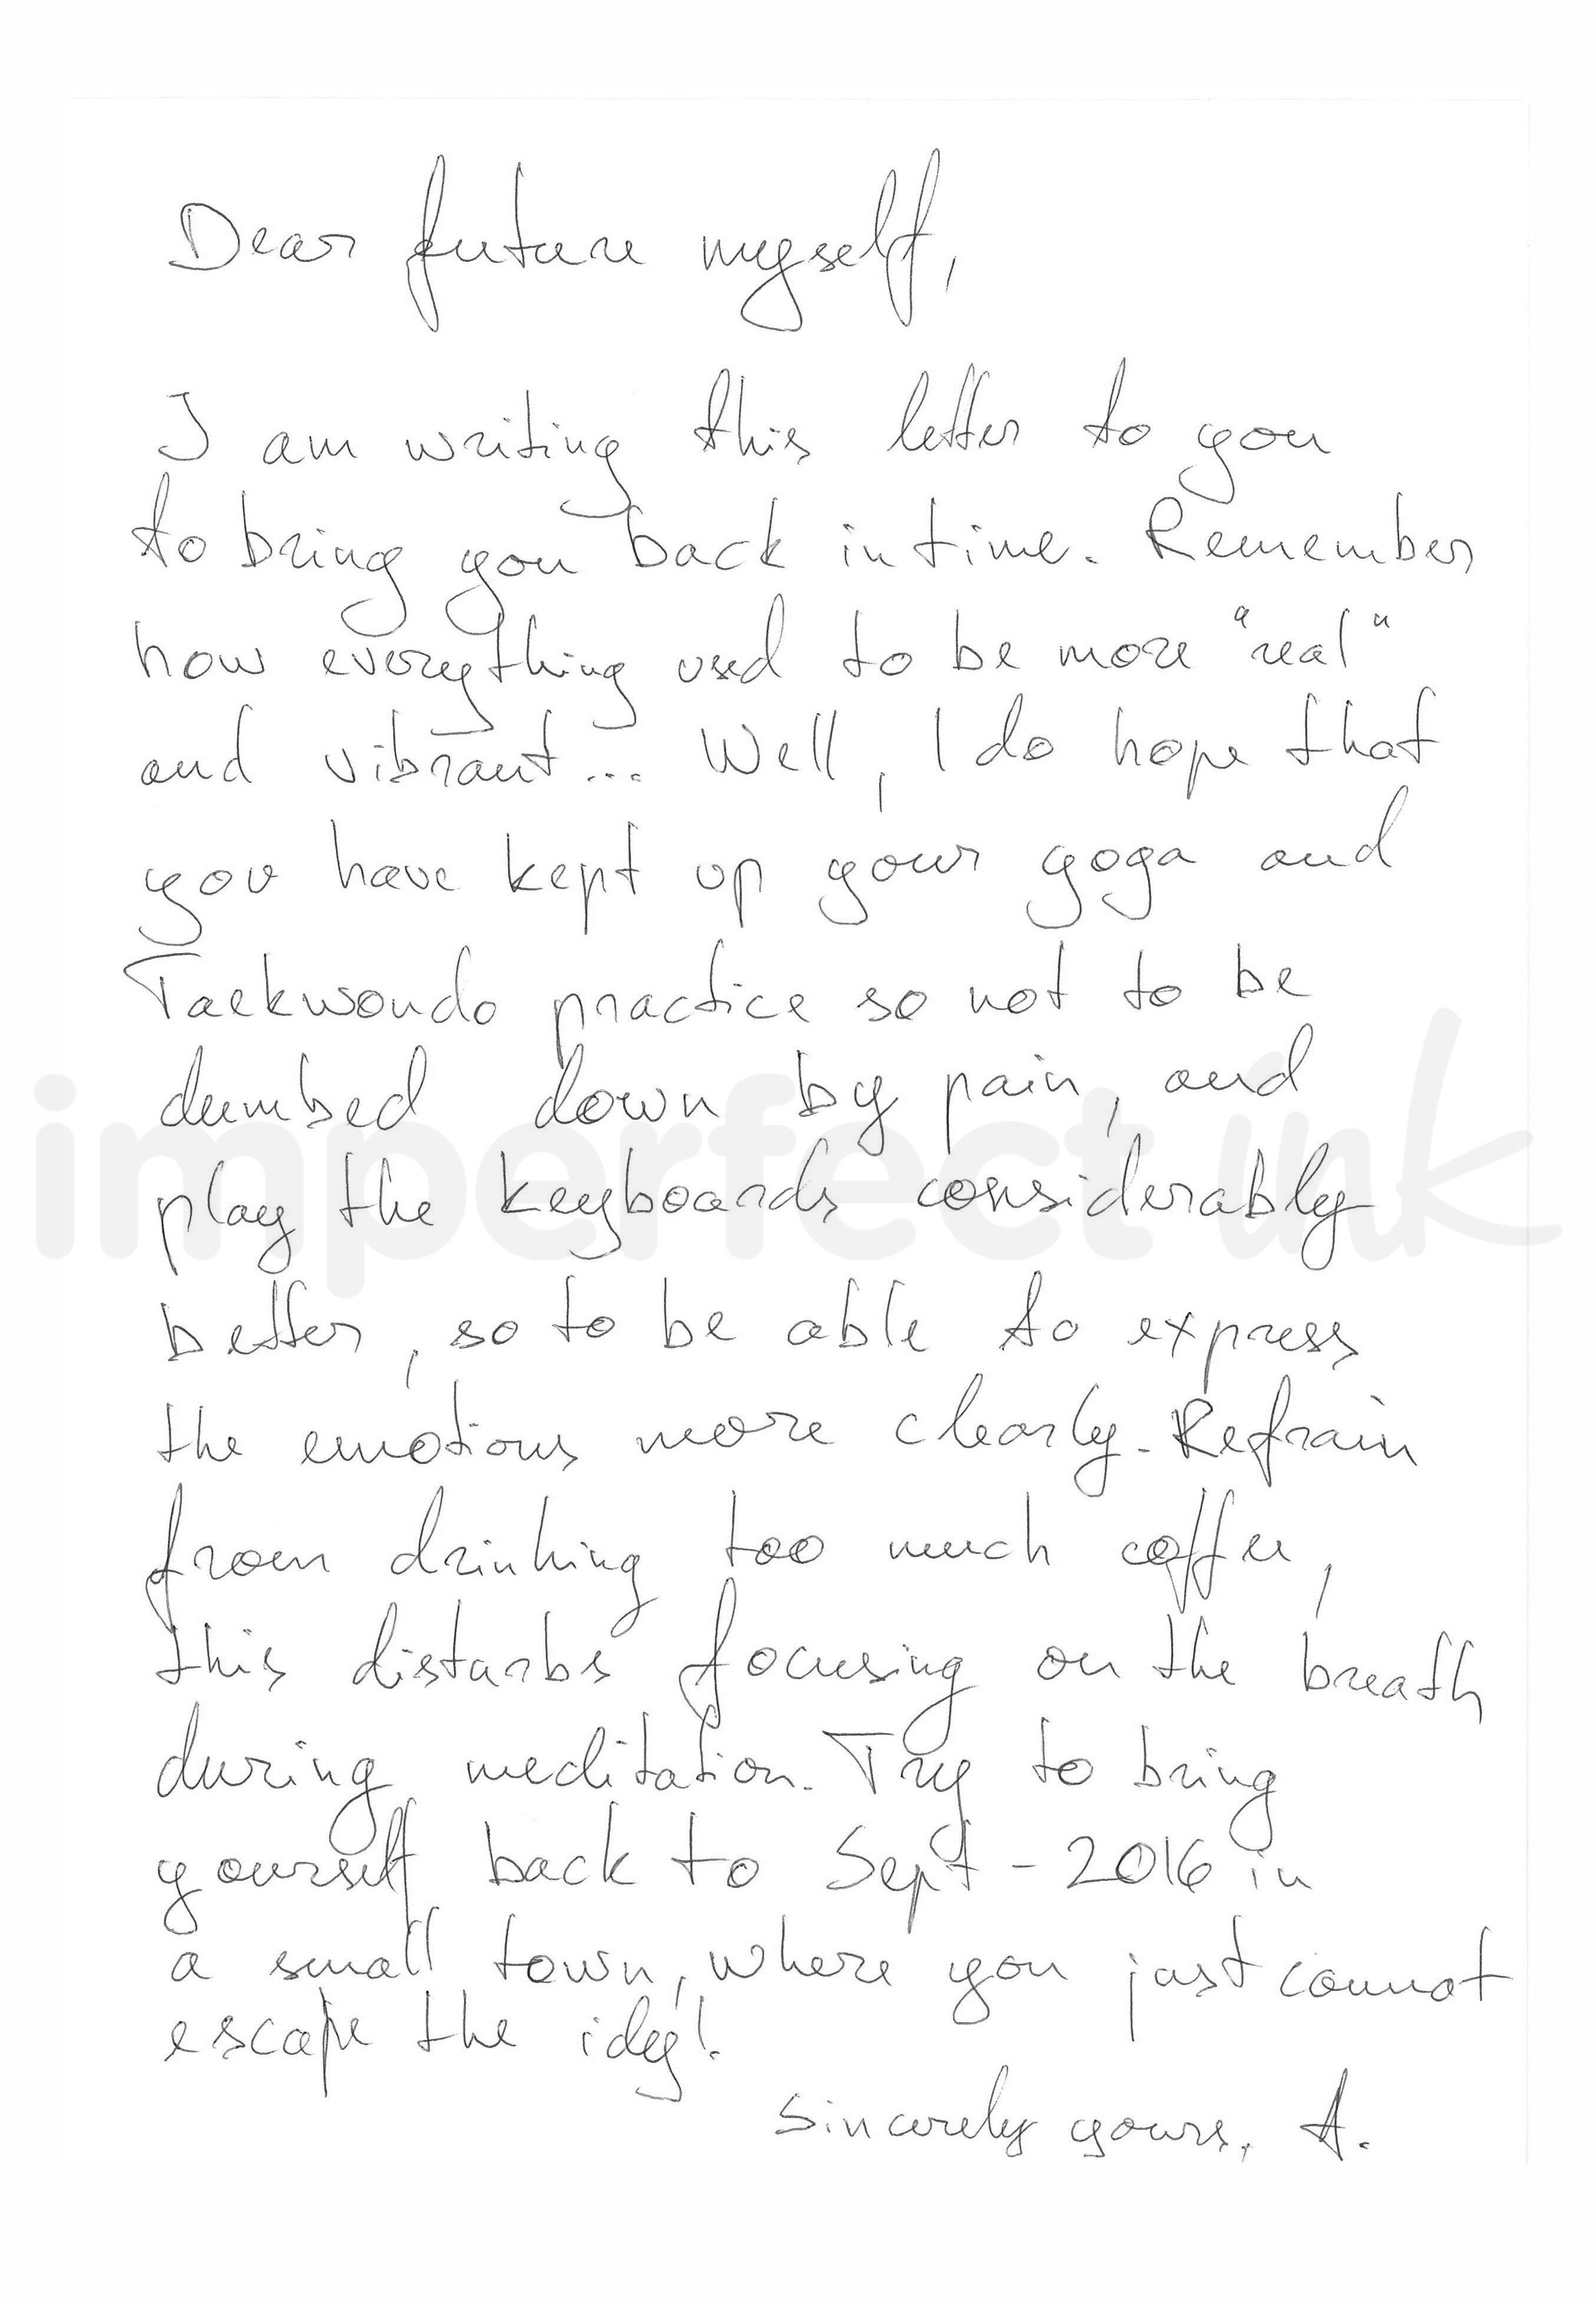 Dear future myself,
I am writing this letter to you
to bring you back in time. Remember
how everything used to be more "real"
and vibrant... Well, I do hope that
you have kept up your yoga and
Taekwondo practice so not to be
dumbed down by pain, and
imperfect ink
play the keyboards considerably
better, so to be able to express
the emotions more clearly. Refrain
from drinking too much coffee,
this disturbs focusing on the breath
during meditation. Try to bring
yourself back to Sept - 2016 in
a small town, where you just cannot
escape the
Sincerely yours, A.